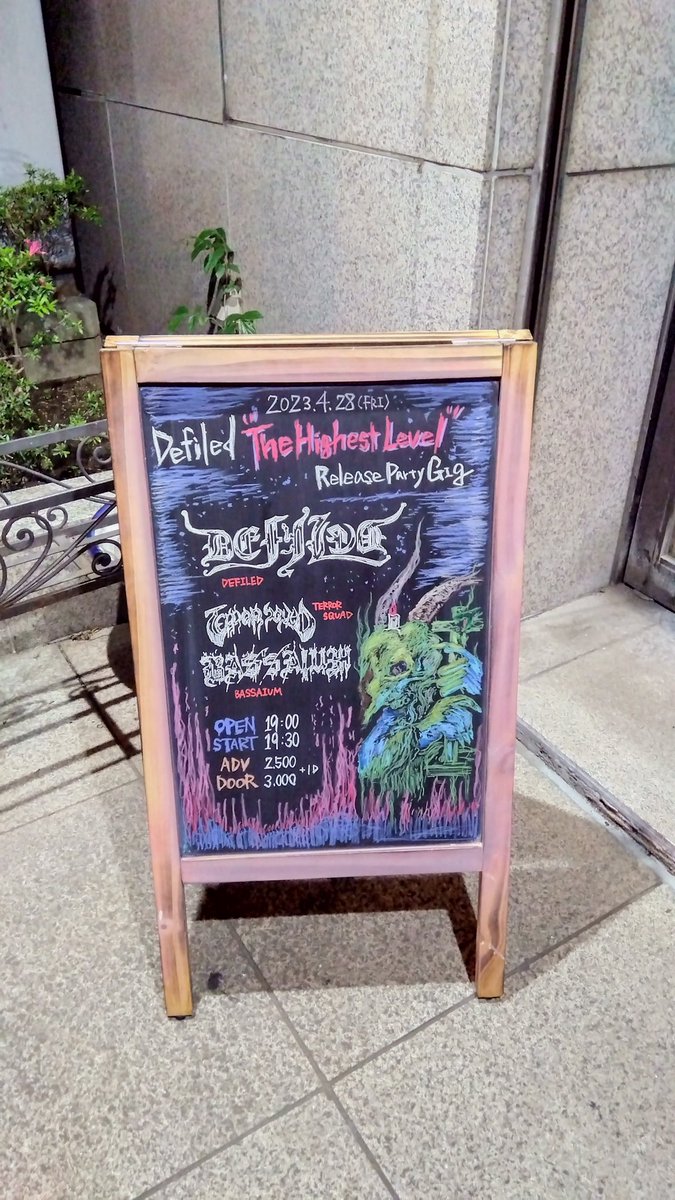 2023.4.28(FRI)
Defiled "The Highest Level"
Release Party Gig
DEFILED
DEFILED
TERROR SQUAD
TERROR
SQUAD
BASSAIUM
BASSAIUM
OPEN 19:00
START 19:30
ADV 2.500
DOOR 3.000 +1D